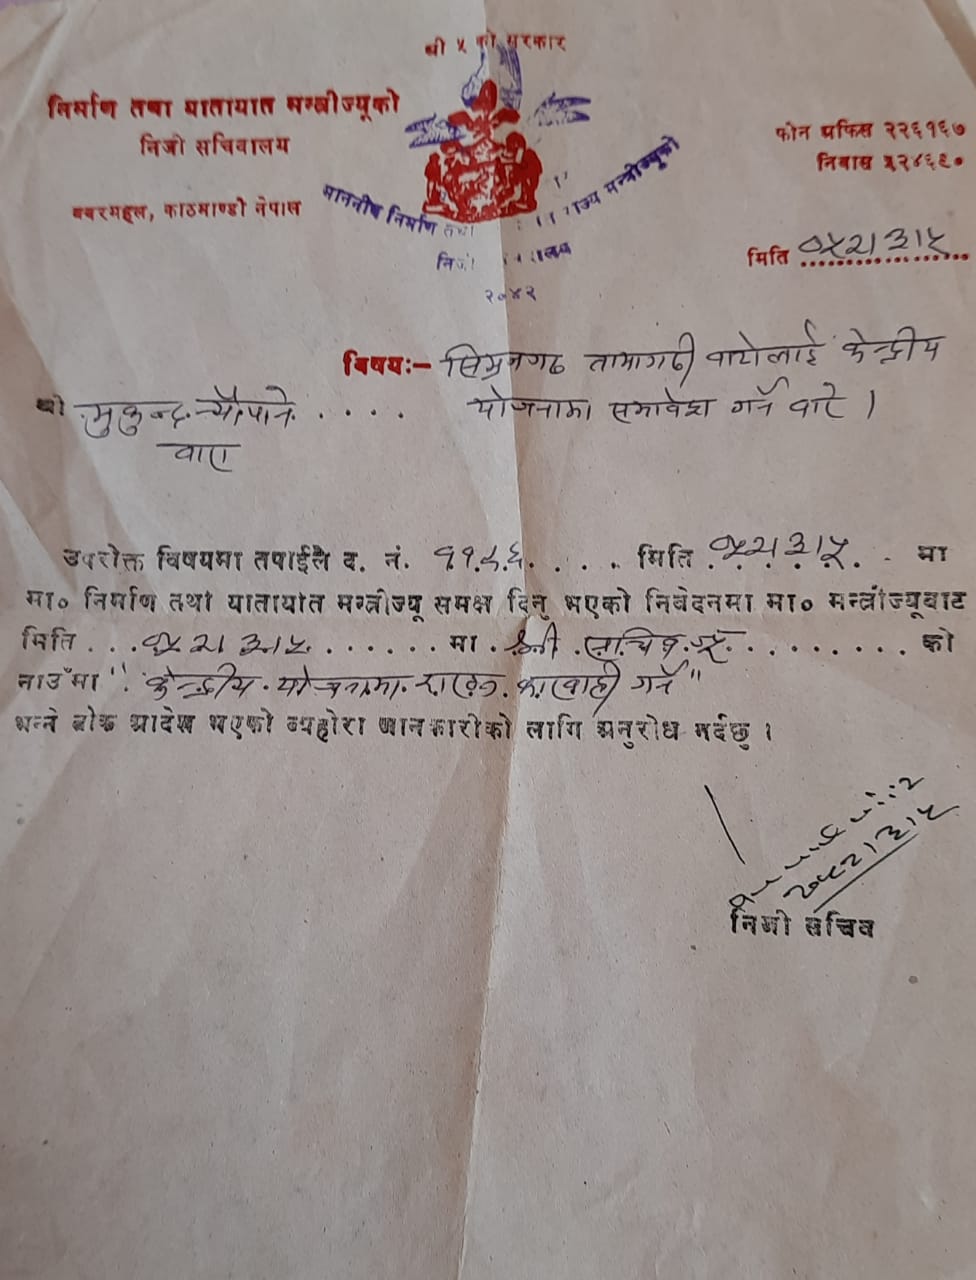 श्री ५ को सरकार
निर्माण तथा यातायात मन्त्रीज्यूको
निजी सचिवालय
बबरमहल, काठमाण्डौ नेपाल
फोन अफिस २२६१६७
निवास
माननीय निर्माण तथा राज्य मन्त्रीज्यूको
२०४२
मिति ०५२।३।५
विषयः- सिम्रनगढ तामागढी बाटोलाई केन्द्रीय
योजनामा समावेश गर्ने बारे ।
श्री मुकुन्द न्यौपाने . . . .
बारा
उपरोक्त विषयमा तपाईले द. नं. ११५६. . . . मिति ०५२।३।५. मा
मा० निर्माण तथा यातायात मन्त्रीज्यू समक्ष दिनु भएको निवेदनमा मा० मन्त्रीज्यूबाट
मिति . . . ०५२।३।५ . . . . . . मा . श्री सचिव ज्यू . . . . . . . . . को
नाउँमा " केन्द्रीय योजनामा राख्न कारवाही गर्ने "
भन्ने तोक आदेश भएको व्यहोरा जानकारीको लागि अनुरोध गर्दछु ।
०५२।३।५
निजी सचिव